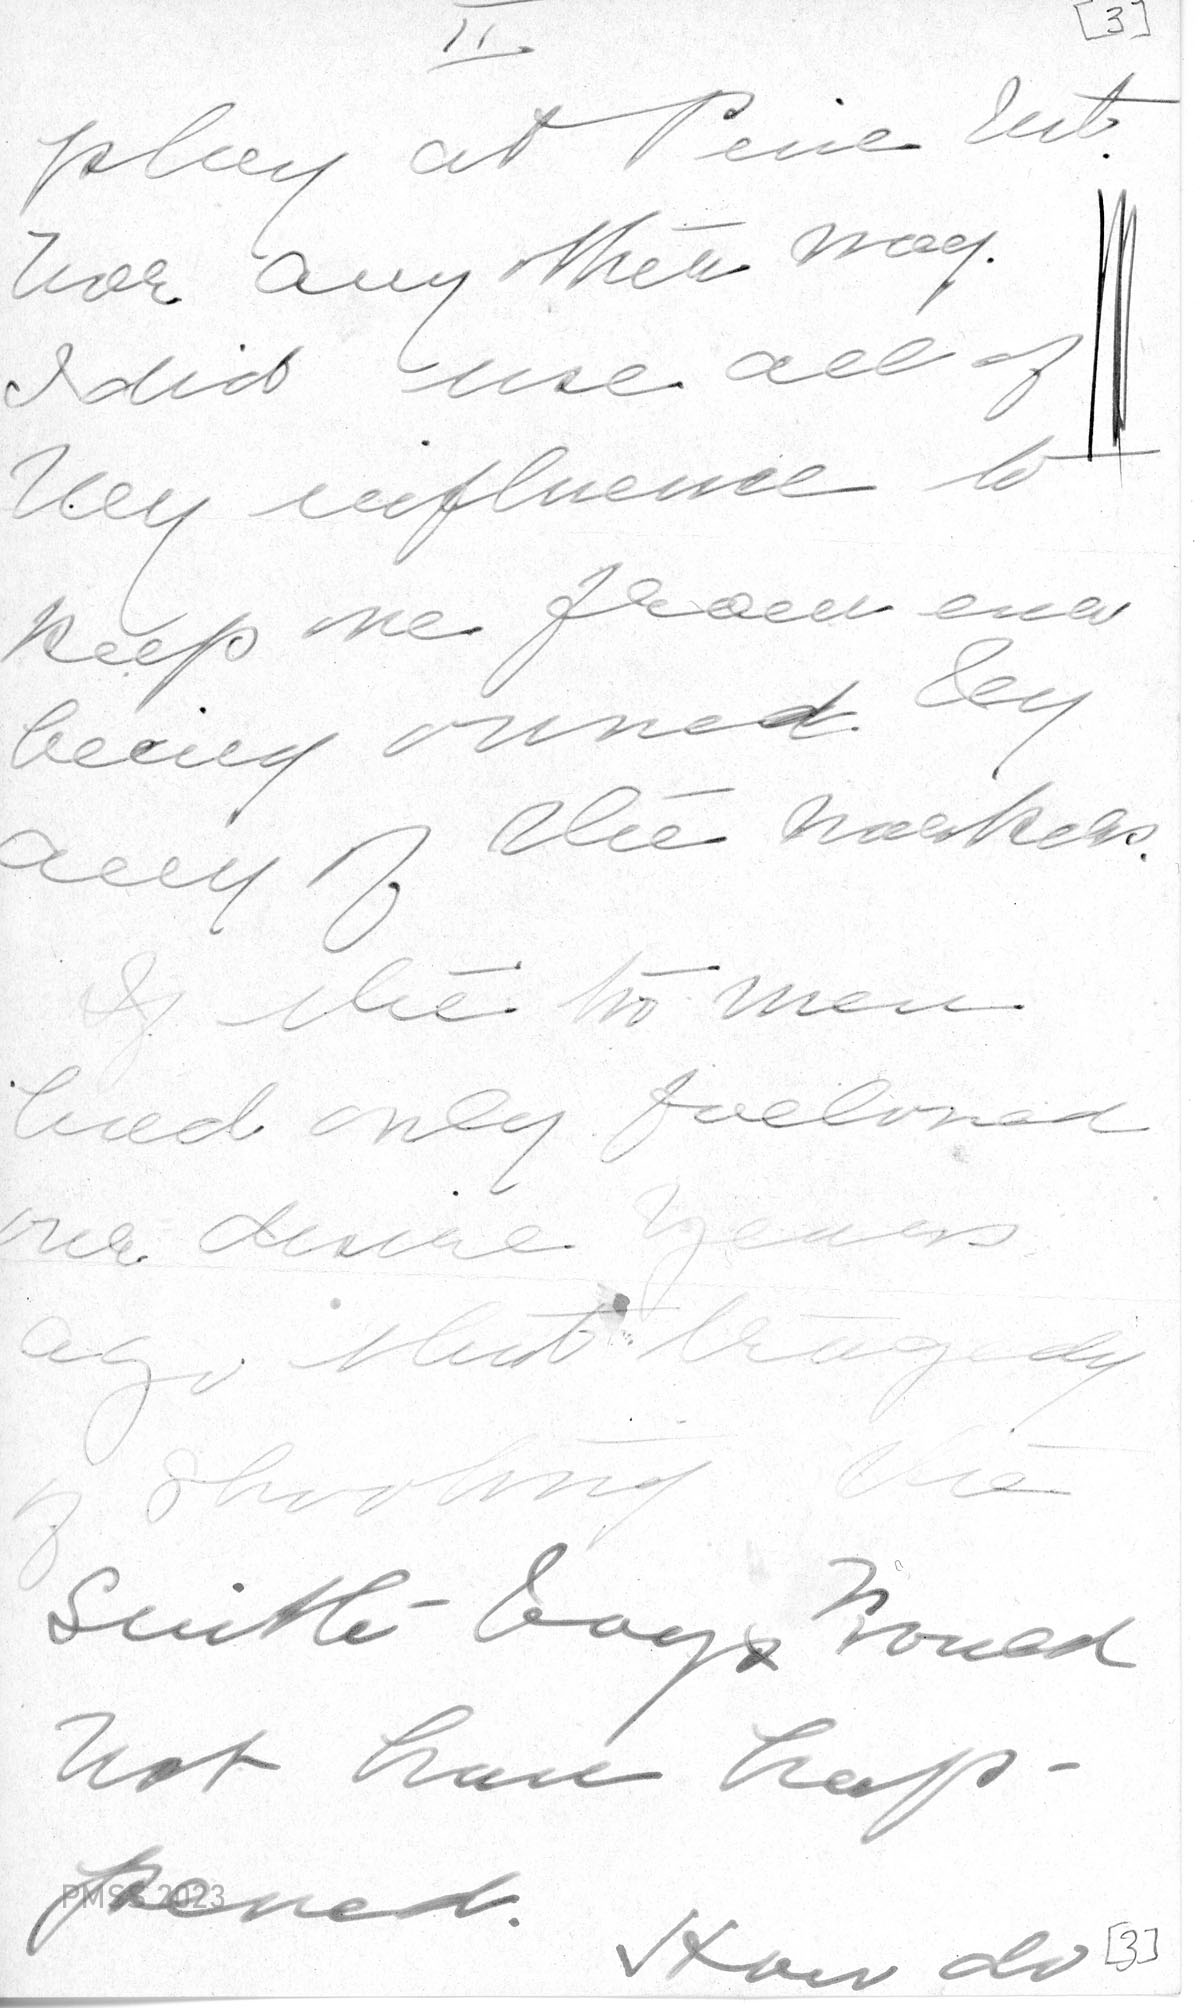 II [3]
play at Pine Mt.
nor any other way.
I did use all of
my influence to
keep me from ever
being owned by
any of the workers.
If the two men
had only followed
our desire years
ago that tragedy
of shooting the
Smith boys would
not have hap-
pened. How do [3]
PMSS 2023